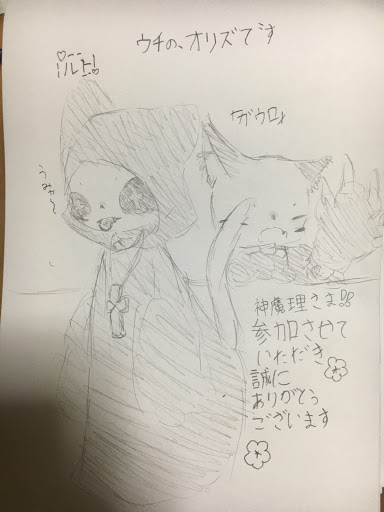 ウチの、オリズです
ルト!
『ガウロ』
うみゃ〜
神魔理さま!!
参加させて
いただき
誠に
ありがとう
ございます